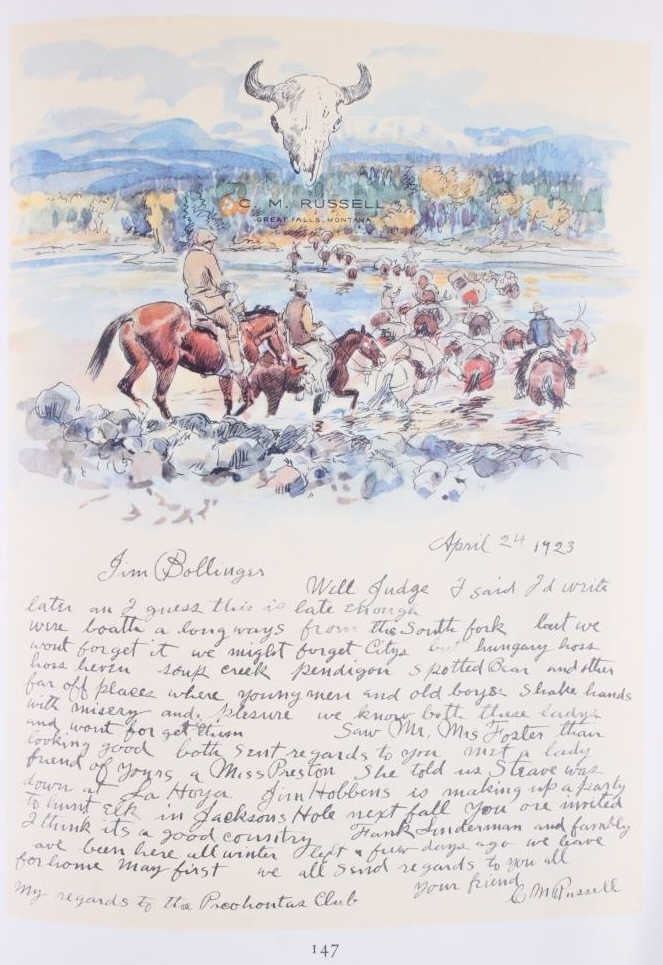 C. M. RUSSELL
GREAT FALLS, MONTANA
April 24 1923
Jim Bollinger
Well Judge I said I'd write
later an I guess this is late enough
were boath a long ways from the South fork but we
wont forget it we might forget Citys but hungary hoss
hoss heven soup creek pendigon Spotted Bear and other
far off places where young men and old boys shake hands
with misery and plesure we know both these ladys
and wont for get them Saw Mr. Mrs Foster thair
looking good both sent regards to you met a lady
friend of yours a Miss Preston She told us Steave was
down at La Hoya Jim Hobbens is making up a party
to hunt elk in Jacksons Hole next fall You are invited
I think its a good country Frank Linderman and fambly
ave been here all winter left a few days ago we leave
for home May first we all send regards to you all
your friend
C M Russell
My regards to the Pocohontas Club
147